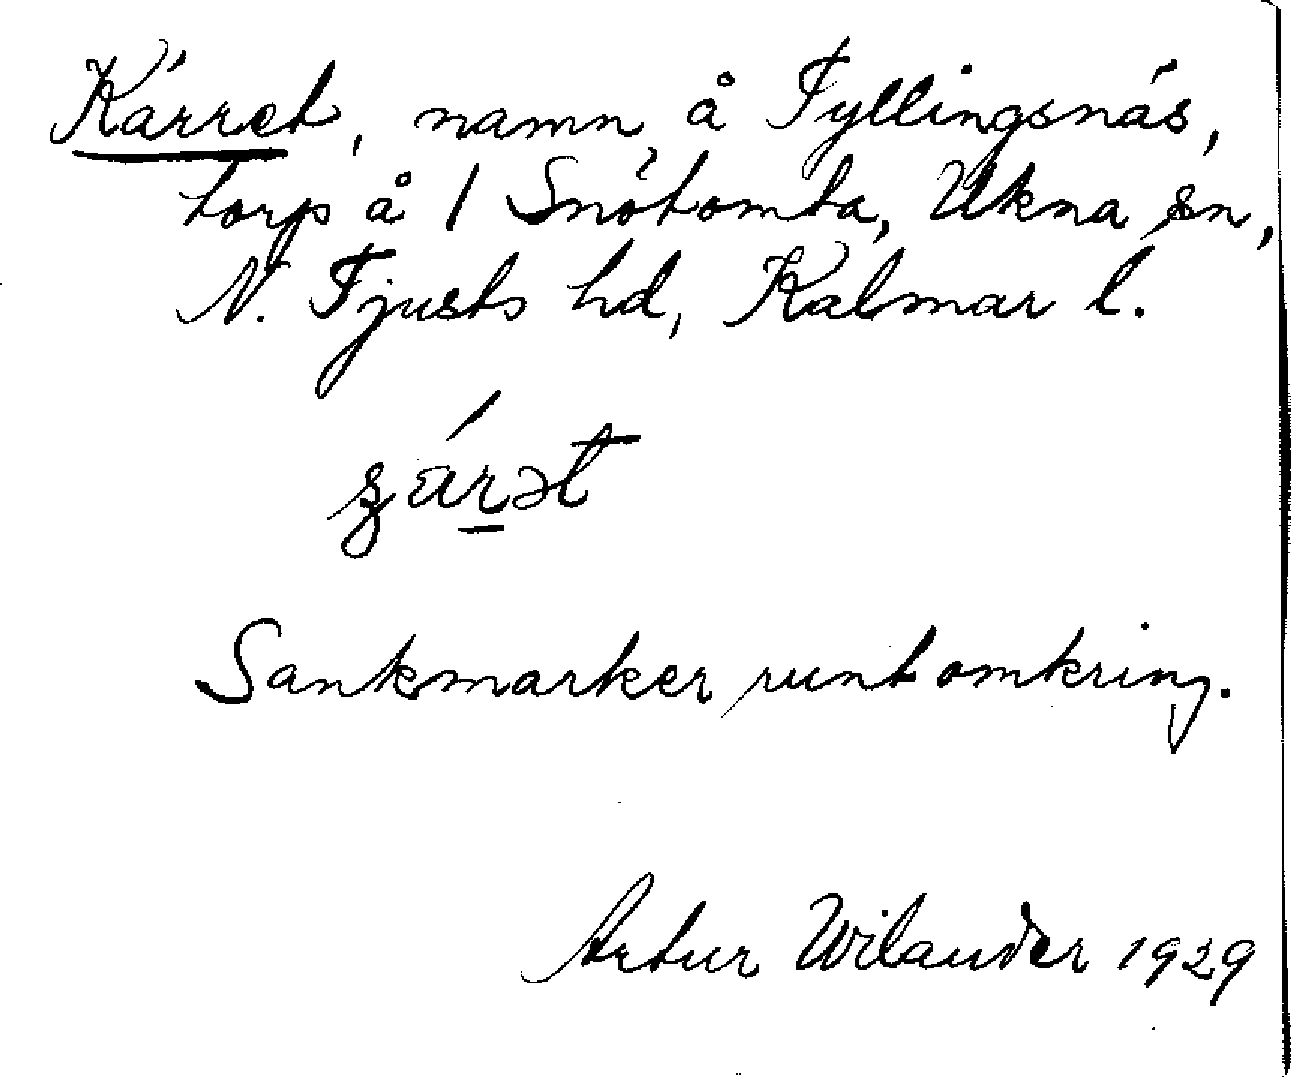 Kärret, namn å Fyllingsnäs,
torp å 1 Snötomta, Ukna sn,
N. Tjusts hd, Kalmar l.
Sankmarker runtomkring.
Artur Wilander 1929